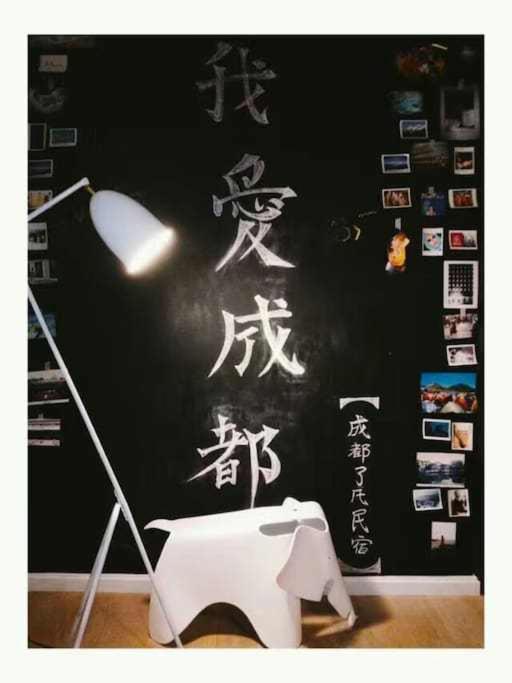 我愛成都
【成都了凡民宿】